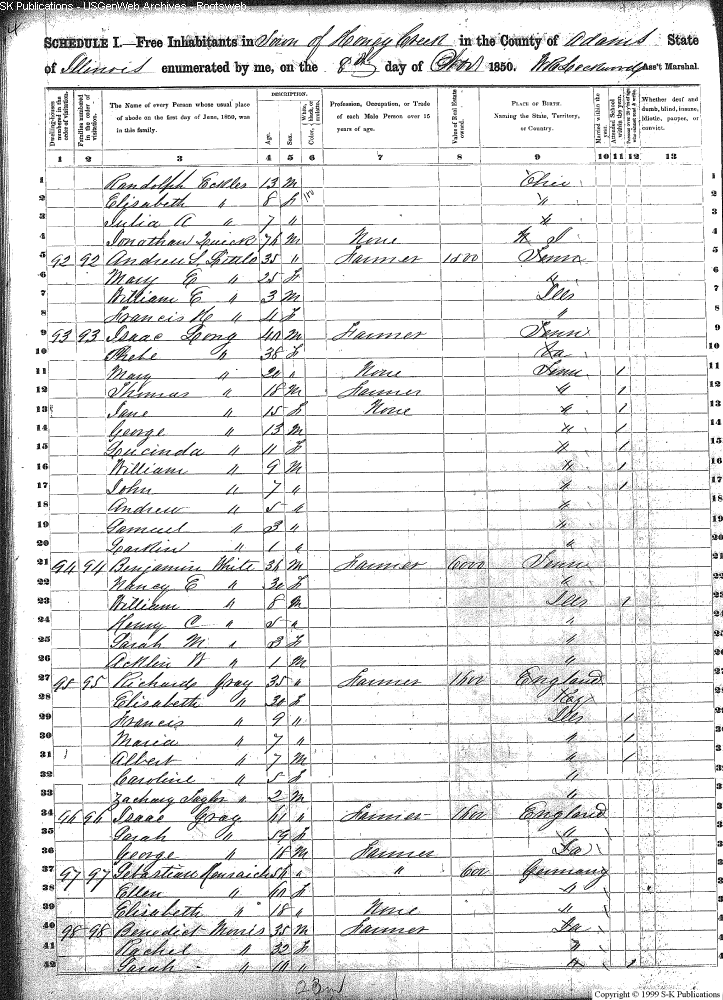 SK Publications - USGenWeb Archives - Rootsweb
SCHEDULE I.—Free Inhabitants in Town of Honey Creek in the County of Adams State
of Illinois enumerated by me, on the 8th day of 1850. Ass't Marshal.
DESCRIPTION.
Dwelling-houses numbered in the order of visitation.
Families numbered in the order of visitation.
The Name of every Person whose usual place of abode on the first day of June, 1850, was in this family.
Age.
Sex.
Color, White, black, or mulatto.
Profession, Occupation, or Trade of each Male Person over 15 years of age.
Value of Real Estate owned.
PLACE OF BIRTH. Naming the State, Territory, or Country.
Married within the year.
Attended School within the year.
Whether deaf and dumb, blind, insane, idiotic, pauper, or convict.
1 2 3 4 5 6 7 8 9 10 11 12 13
1 Randolph Eckles 13 M Ohio 1
2 Elisabeth " 8 F " 2
3 Julia A " 7 " " 3
4 Jonathan 76 M None 4
5 92 92 Andrew S 35 " Farmer 1500 Tenn 5
6 Mary E " 25 F " 6
7 William E " 3 M Ills 7
8 Francis " 4 F " 8
9 93 93 Isaac Long 40 M Farmer Tenn 9
10 Phebe " 38 F Va 10
11 Mary " 20 " None Tenn 1 11
12 Thomas " 18 M Farmer " 1 12
13 Jane " 15 F None " 1 13
14 George " 13 M " 1 14
15 Lucinda " 11 F " 1 15
16 William " 9 M " 1 16
17 John " 7 " " 1 17
18 Andrew " 5 " " 18
19 Samuel " 3 " " 19
20 Larkin " 1 " " 20
21 94 94 Benjamin White 36 M Farmer 6000 Tenn 21
22 Nancy E " 30 F " 22
23 William " 8 M Ills 1 23
24 Henry C " 5 " " 24
25 Sarah M " 3 F " 25
26 Acklin W " 1 M " 26
27 95 95 Richards Gray 35 " Farmer 1600 England
28 Elisabeth " 30 F Key
29 Francis " 9 " Ills 1
30 Maria " 7 " " 1
31 Albert " 7 M " 1
32 Caroline " 5 F "
33 Zachary Taylor " 2 M "
34 96 96 Isaac Gray 61 " Farmer 1600 England
35 Sarah " 59 F "
36 George " 18 M Farmer
37 97 97 Sebastian 56 " " 600 Germany
38 Ellen " 60 F "
39 Elisabeth " 18 " None "
40 98 98 Benedict Morris 35 M Farmer
41 Rachel " 32 F "
42 Sarah " 10 " " 1
23rd
Copyright © 1999 S-K Publications